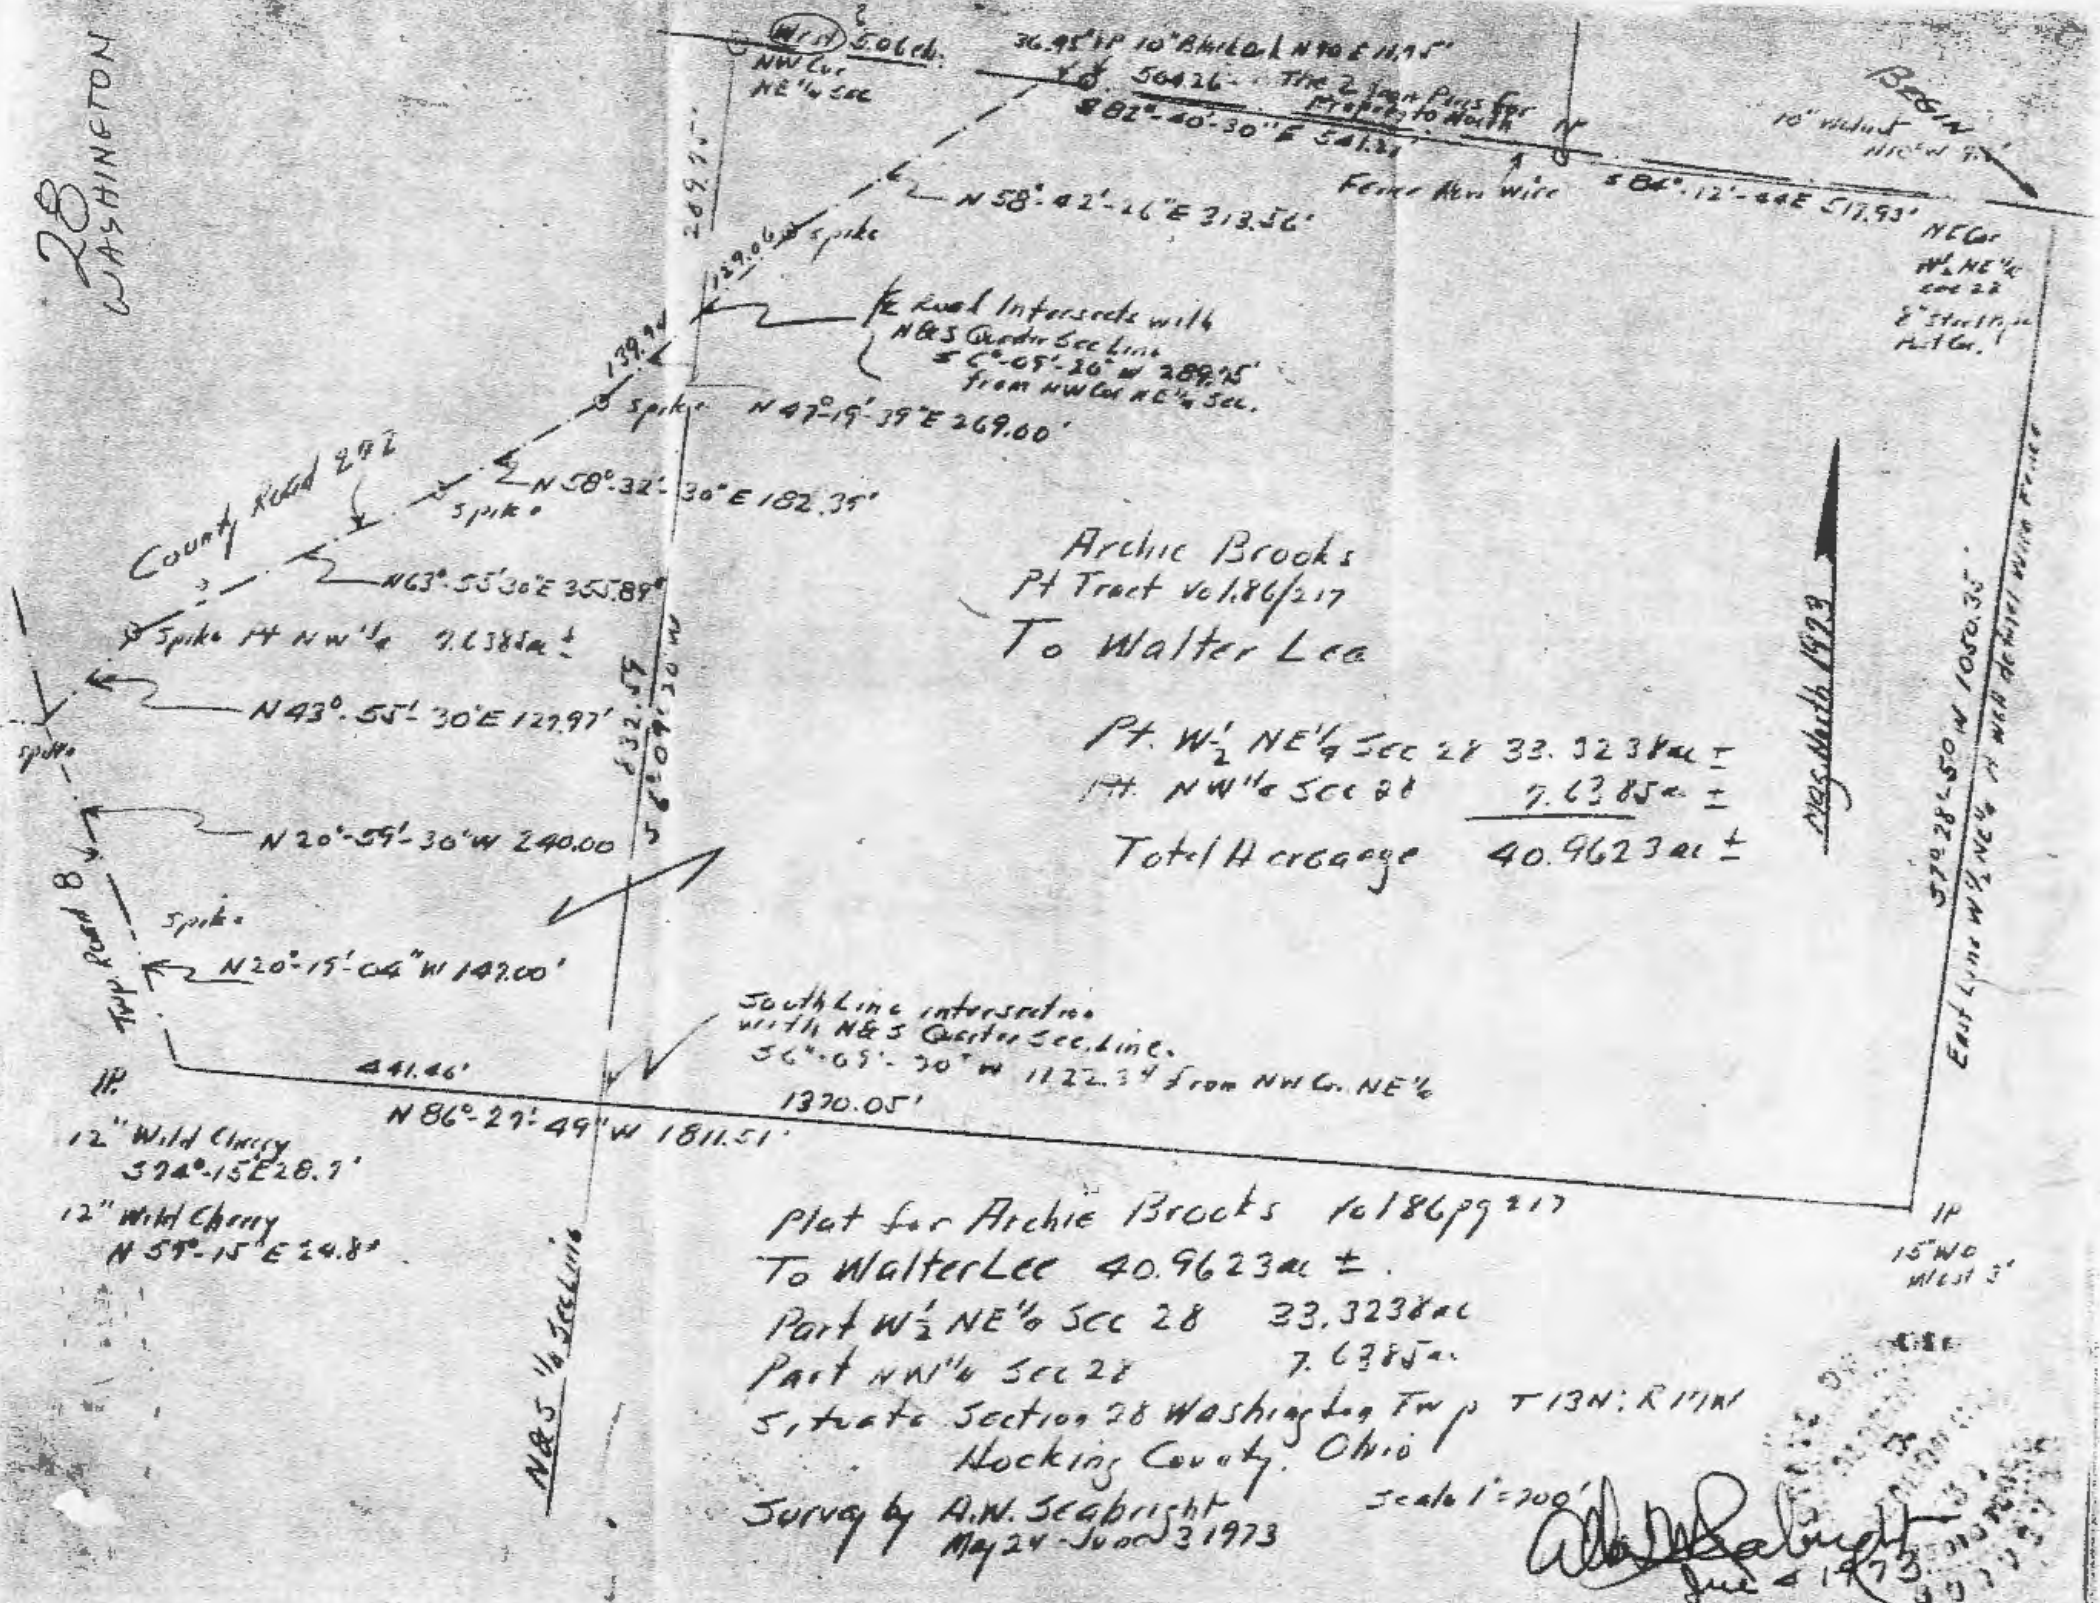 28
WASHINGTON
West 5.06ch.
NW Cor
NE 1/4 Sec
36.95' IP 10" Black Oak N 40 E 11.95'
504.26 The 2 Iron Pins for
Property to North
S 82°-40'-30" E 541.21'
IP
Fence Nov Wire
BEGIN
10" Walnut
S 84°-12'-44 E 517.93'
NE Cor
W 1/2 NE 1/4
Sec 28
8" Steel Pipe
Post Cor.
289.75'
N 58°-42'-26" E 313.56'
spike
129.06
139.94
℄ Road Intersects with
N&S Quarter Sec Line
S 6°-09'-20" W 289.75'
from NW Cor NE 1/4 Sec.
spike N 47°-19'-39" E 269.00'
County Road 292
N 58°-32'-30" E 182.35'
spike
N 63°-55'30" E 355.89'
Spike Pt NW 1/4 7.6385ac ±
N 43°-55'-30" E 127.97'
spike
832.59
S 6°09'-20 W
N 20°-59'-30" W 240.00
Twp. Road 8
spike
N 20°-15'-04" W 147.00'
Archie Brooks
Pt Tract Vol.86/217
To Walter Lee
Pt. W 1/2 NE 1/4 Sec 28 33.3238ac ±
Pt. NW 1/4 Sec 28 7.6385ac ±
Total Acreage 40.9623ac ±
Mag North 1973
28'-50 W 1050.35'
East Line W 1/2 NE 1/4 Wire Fence
South Line intersection
with N&S Quarter Sec. Line.
S 6°-09'-20" W 1122.34 from NW Cor. NE 1/4
441.46'
1370.05'
N 86°-27'-49" W 1811.51'
IP.
12" Wild Cherry
S 74°-15 E 28.7'
12" Wild Cherry
N 59°-15' E 24.8'
N&S 1/4 Sec Line
IP
15" WO
West 3'
Plat for Archie Brooks Vol 86 pg 217
To Walter Lee 40.9623ac ±.
Part W 1/2 NE 1/4 Sec 28 33.3238ac
Part NW 1/4 Sec 28 7.6385ac
Situate Section 28 Washington Twp T 13N; R 17W
Hocking County, Ohio
Survey by A.W. Seabright
May 24 - June 3 1973
Scale 1"=200'
June 4 1973